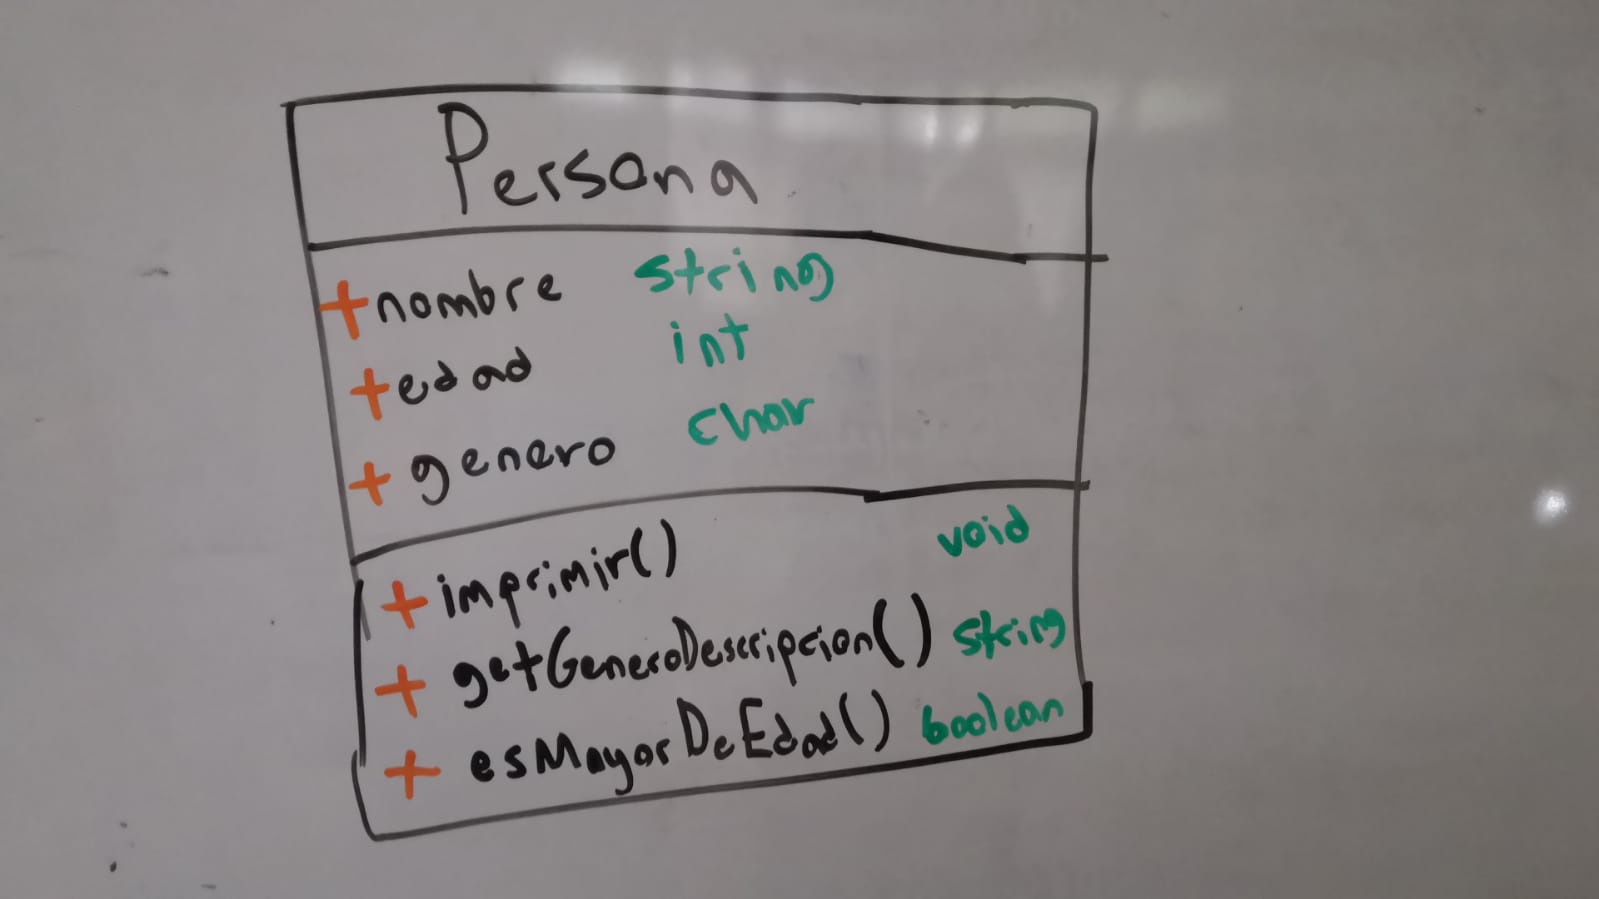 Persona
+nombre string
+edad int
+ genero char
+ imprimir() void
+ getGeneroDescripcion() string
+ esMayorDeEdad() boolean